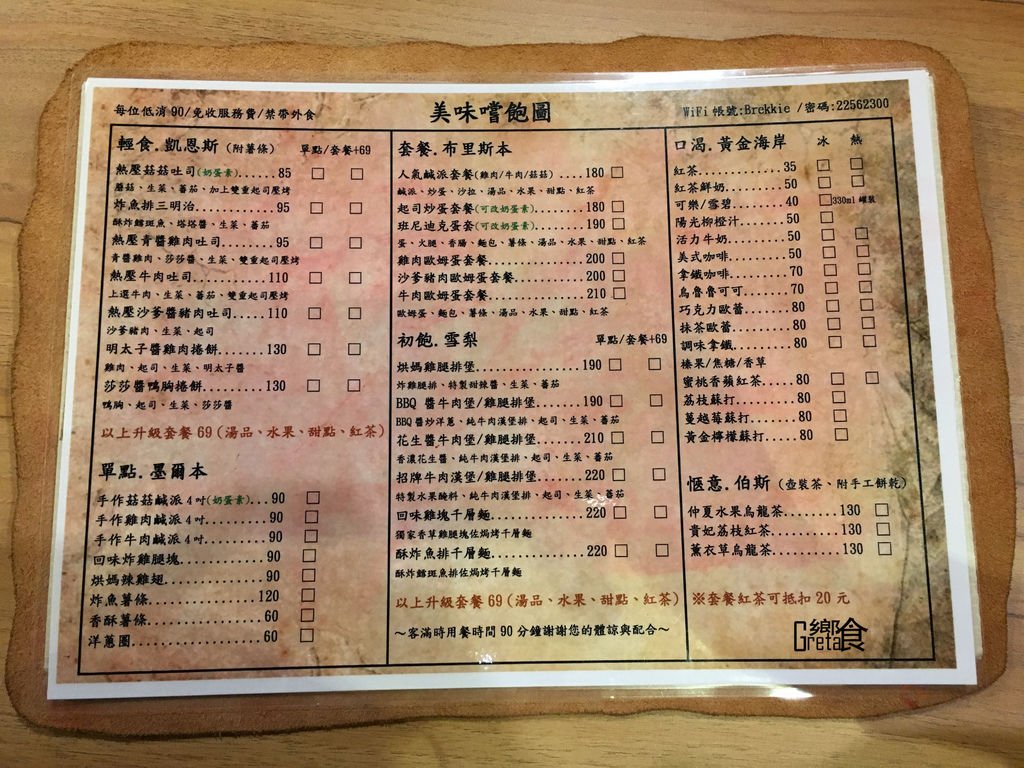 每位低消90/免收服務費/禁帶外食
美味嚐飽圖
WiFi 帳號:Brekkie /密碼:22562300
輕食.凱恩斯(附薯條) 單點/套餐+69
熱壓菇菇吐司(奶蛋素)...85 □ □
蘑菇、生菜、蕃茄、加上雙重起司壓烤
炸魚排三明治............95 □ □
酥炸鱈斑魚、塔塔醬、生菜、蕃茄
熱壓青醬雞肉吐司........95 □ □
青醬雞肉、莎莎醬、生菜、雙重起司壓烤
熱壓牛肉吐司..........110 □ □
上選牛肉、生菜、蕃茄、雙重起司壓烤
熱壓沙爹醬豬肉吐司.....110 □ □
沙爹豬肉、生菜、起司
明太子醬雞肉捲餅.......130 □ □
雞肉、起司、生菜、明太子醬
莎莎醬鴨胸捲餅.........130 □ □
鴨胸、起司、生菜、莎莎醬
以上升級套餐69(湯品、水果、甜點、紅茶)
單點.墨爾本
手作菇菇鹹派4吋(奶蛋素)...90 □
手作雞肉鹹派4吋.........90 □
手作牛肉鹹派4吋.........90 □
回味炸雞腿塊............90 □
烘媽辣雞翅..............90 □
炸魚薯條...............120 □
香酥薯條................60 □
洋蔥圈..................60 □
套餐.布里斯本
人氣鹹派套餐(雞肉/牛肉/菇菇) ....180 □
鹹派、炒蛋、沙拉、湯品、水果、甜點、紅茶
起司炒蛋套餐(可改奶蛋素)........180 □
班尼迪克蛋套(可改奶蛋素)........190 □
蛋、火腿、香腸、麵包、薯條、湯品、水果、甜點、紅茶
雞肉歐姆蛋套餐..........200 □
沙爹豬肉歐姆蛋套餐.......200 □
牛肉歐姆蛋套餐..........210 □
歐姆蛋、麵包、薯條、湯品、水果、甜點、紅茶
初飽.雪梨 單點/套餐+69
烘媽雞腿堡...............190 □ □
炸雞腿排、特製甜辣醬、生菜、蕃茄
BBQ 醬牛肉堡/雞腿排堡.......190 □ □
BBQ醬炒洋蔥、純牛肉漢堡排、起司、生菜、蕃茄
花生醬牛肉堡/雞腿排堡.......210 □ □
香濃花生醬、純牛肉漢堡排、起司、生菜、蕃茄
招牌牛肉漢堡/雞腿排堡.......220 □ □
特製水果醃料、純牛肉漢堡排、起司、生菜、蕃茄
回味雞塊千層麵.............220 □ □
獨家香草雞腿塊佐焗烤千層麵
酥炸魚排千層麵.............220 □ □
酥炸鱈斑魚排佐焗烤千層麵
以上升級套餐69(湯品、水果、甜點、紅茶)
~客滿時用餐時間90分鐘謝謝您的體諒與配合~
口渴.黃金海岸 冰 熱
紅茶..............35 □ □
紅茶鮮奶..........50 □ □
可樂/雪碧.........40 □330ml 罐裝
陽光柳橙汁........50 □
活力牛奶..........50 □ □
美式咖啡..........50 □ □
拿鐵咖啡..........70 □ □
烏魯魯可可........70 □ □
巧克力歐蕾........80 □ □
抹茶歐蕾..........80 □ □
調味拿鐵..........80 □ □
榛果/焦糖/香草
蜜桃香蘋紅茶.....80 □ □
荔枝蘇打.........80 □
蔓越莓蘇打.......80 □
黃金檸檬蘇打.....80 □
愜意.伯斯(壺裝茶、附手工餅乾)
仲夏水果烏龍茶........130 □
貴妃荔枝紅茶..........130 □
薰衣草烏龍茶..........130 □
※套餐紅茶可抵扣20元
Greta饗食